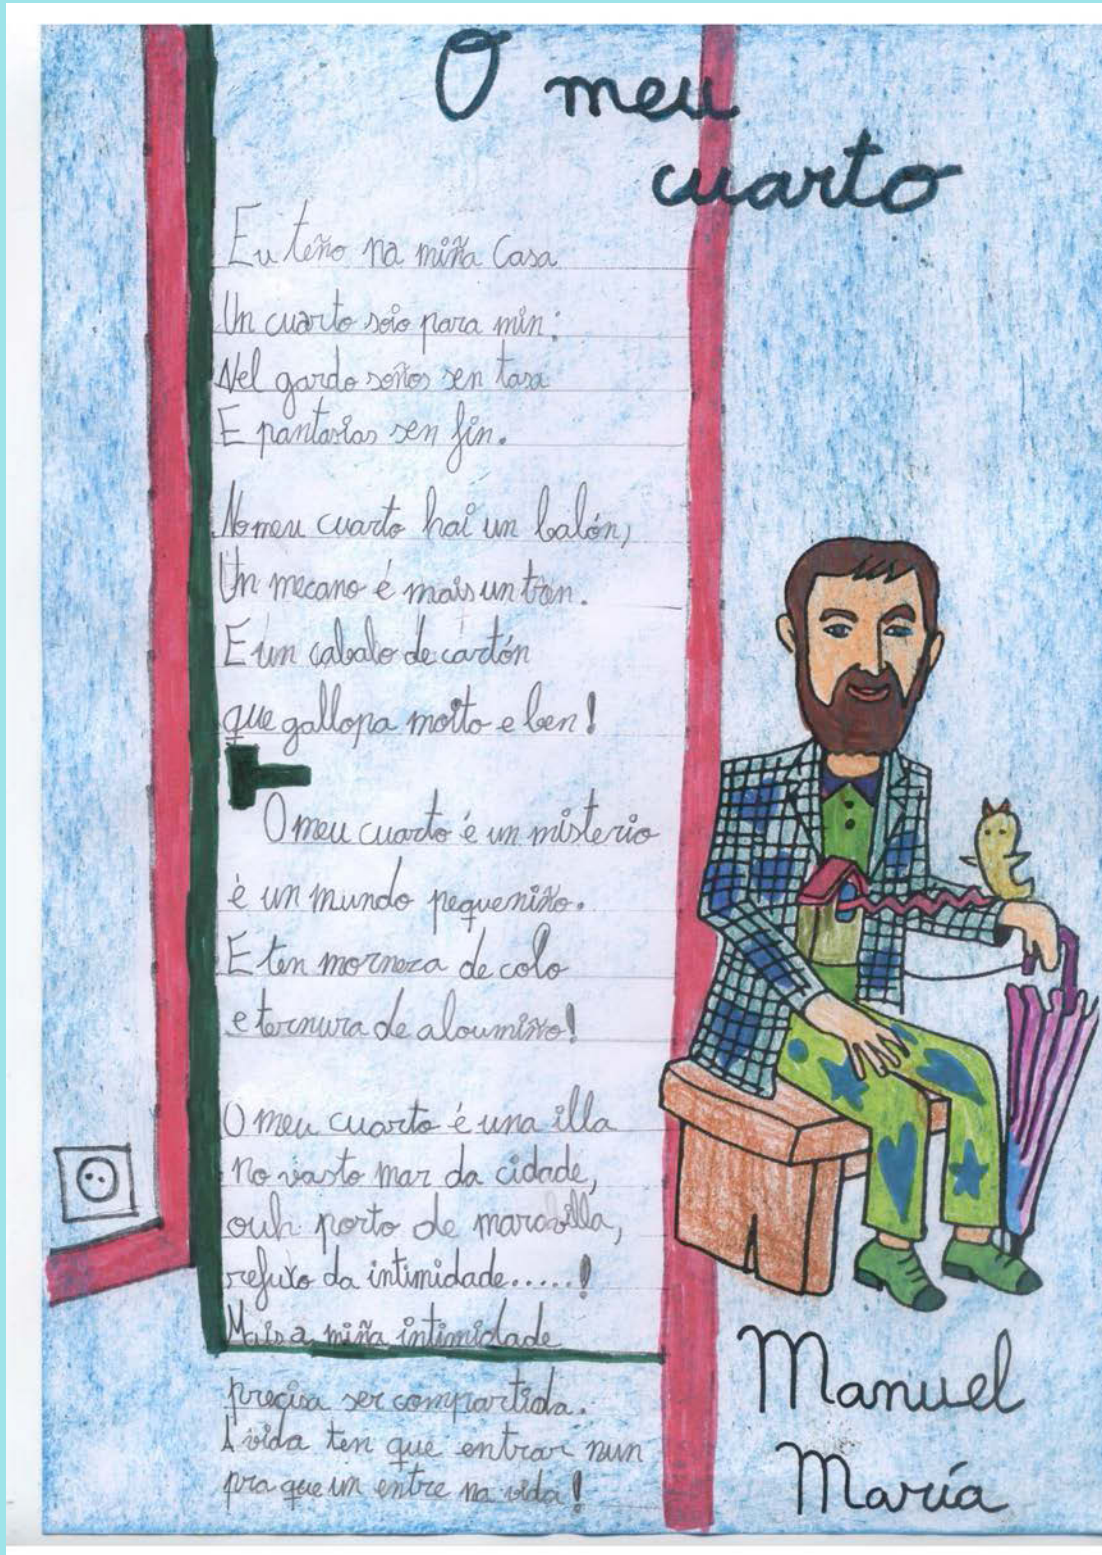 O meu
cuarto
Eu teño na miña Casa
Un cuarto soio para min:
Nel gardo soños sen tasa
E pantasias sen fin.
No meu cuarto hai un balón,
Un mecano é mais un tren.
E un cabalo de cartón
que gallopa moito e ben!
O meu cuarto é un misterio
é un mundo pequeniño.
E ten morneza de colo
e ternura de aloumiño!
O meu cuarto é una illa
no vasto mar da cidade,
ouh porto de maravilla,
refuxo da intimidade.....!
Mais a miña intimidade
precisa ser compartida.
A vida ten que entrar nun
pra que un entre na vida!
Manuel
María